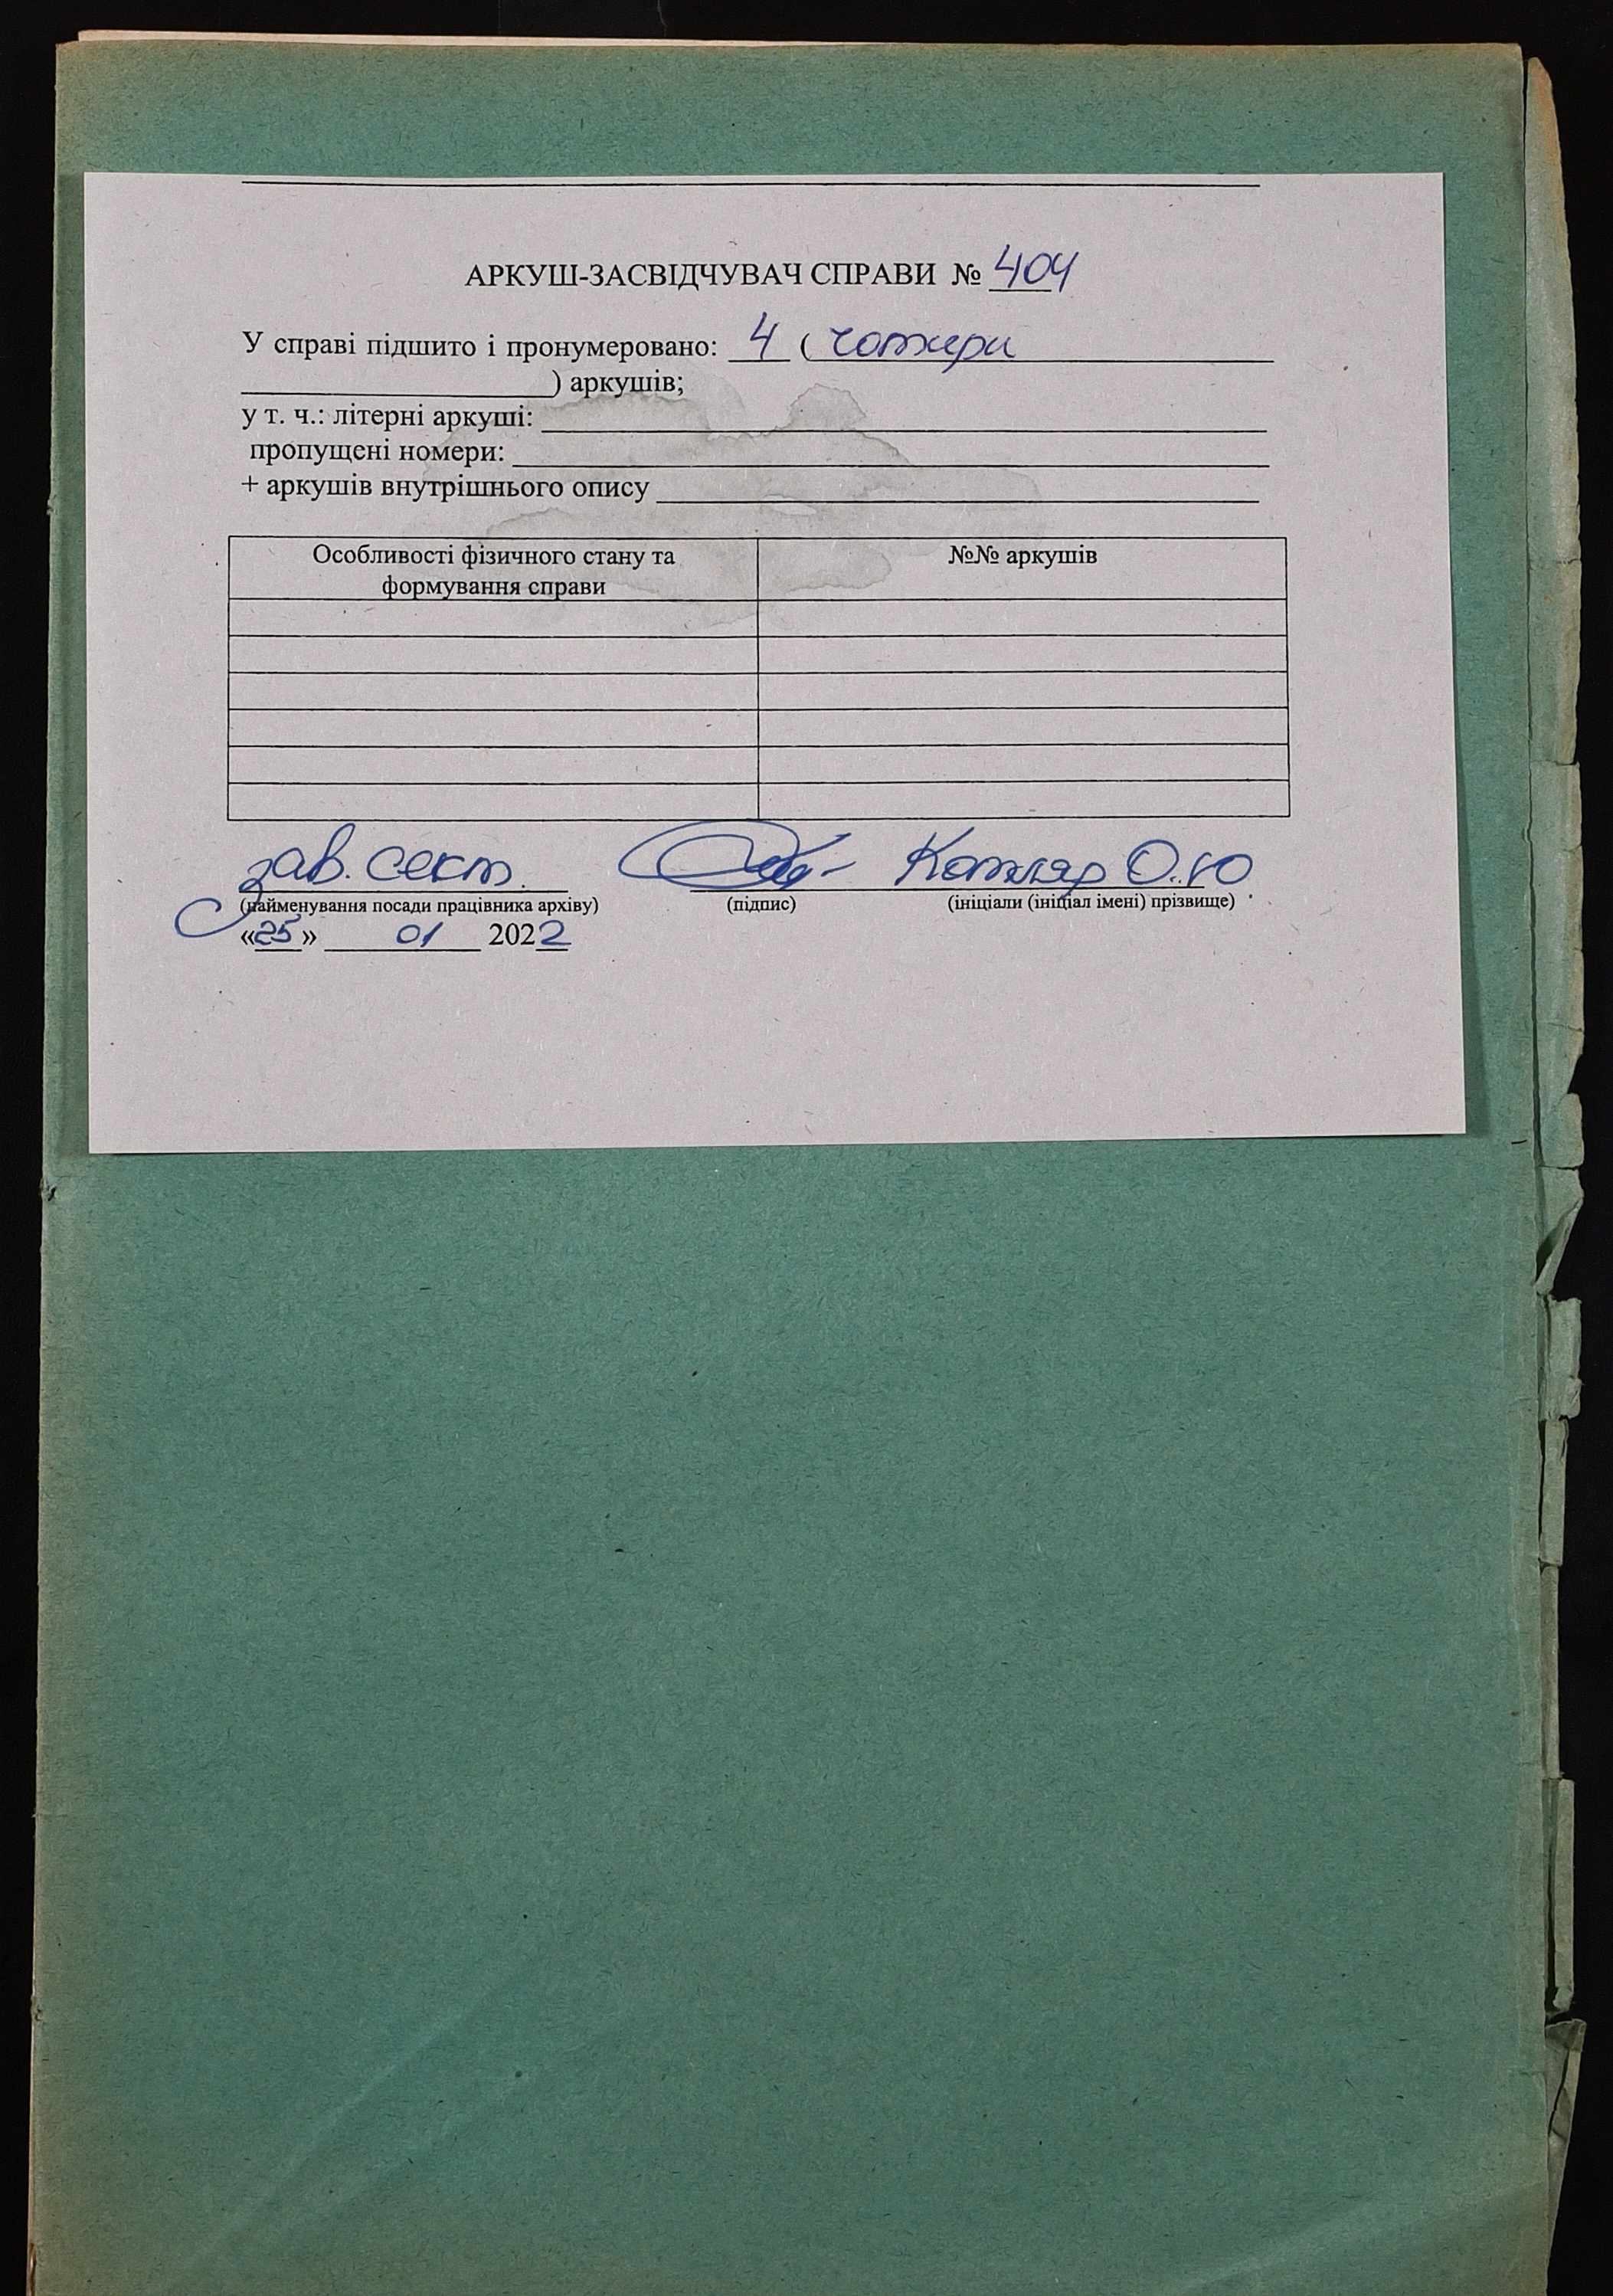 АРКУШ-ЗАСВІДЧУВАЧ СПРАВИ № 404
У справі підшито і пронумеровано: 4 ( чотири
) аркушів;
у т. ч.: літерні аркуші:
пропущені номери:
+ аркушів внутрішнього опису
Особливості фізичного стану та формування справи
№№ аркушів
зав. сект. Котляр О.Ю
(найменування посади працівника архіву) (підпис) (ініціали (ініціал імені) прізвище)
«25» 01 2022